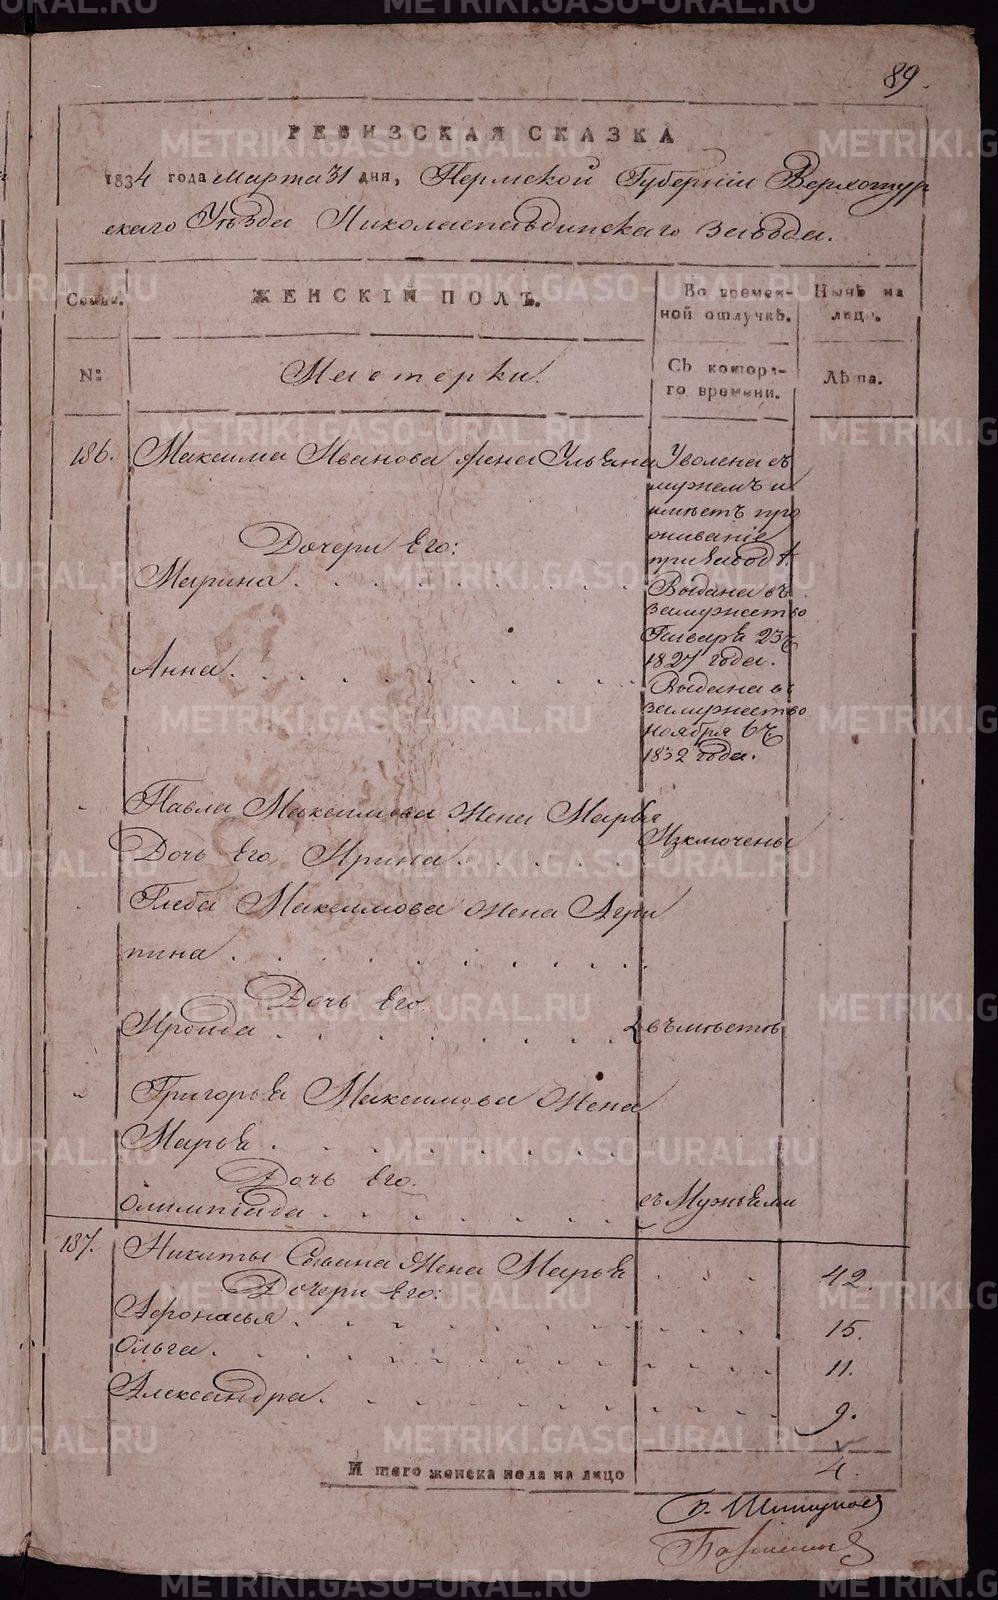 89.
РЕВИЗСКАЯ СКАЗКА
1834 года марта 31 дня, Пермской Губерніи Верхотур
скаго Уѣзда Николаепавдинскаго завода.
Семьи. ЖЕНСКІЙ ПОЛЪ. Во времен-ной отлучкѣ. Нынѣ на лицо.
№ Мастерки. Съ которо-го времени. Лѣта.
186. Максима Иванова жена Ульяна Уволена съ
мужемъ и
имѣетъ про
живаніе
Дочери Его:
при заводѣ.
Марина
Выдана въ
замужество
Генваря 23ч
1827 года.
Анна.
Выдана въ
замужество
ноября 6ч
1832 года.
Павла Максимова жена Марья
Дочь Его, Ирина Изключены
Глеба Максимова жена Агри
пина
Дочь Его
Ироида вмѣстѣ
Григорья Максимова жена
Марья
Дочь Его.
Олимпіада съ Мужьями
187. Никиты Савина жена Марья 42.
Дочери Его:
Афонасья 15.
Ольга. 11.
Александра. 9.
И того женска пола на лицо 4.
METRIKI.GASO-URAL.RU